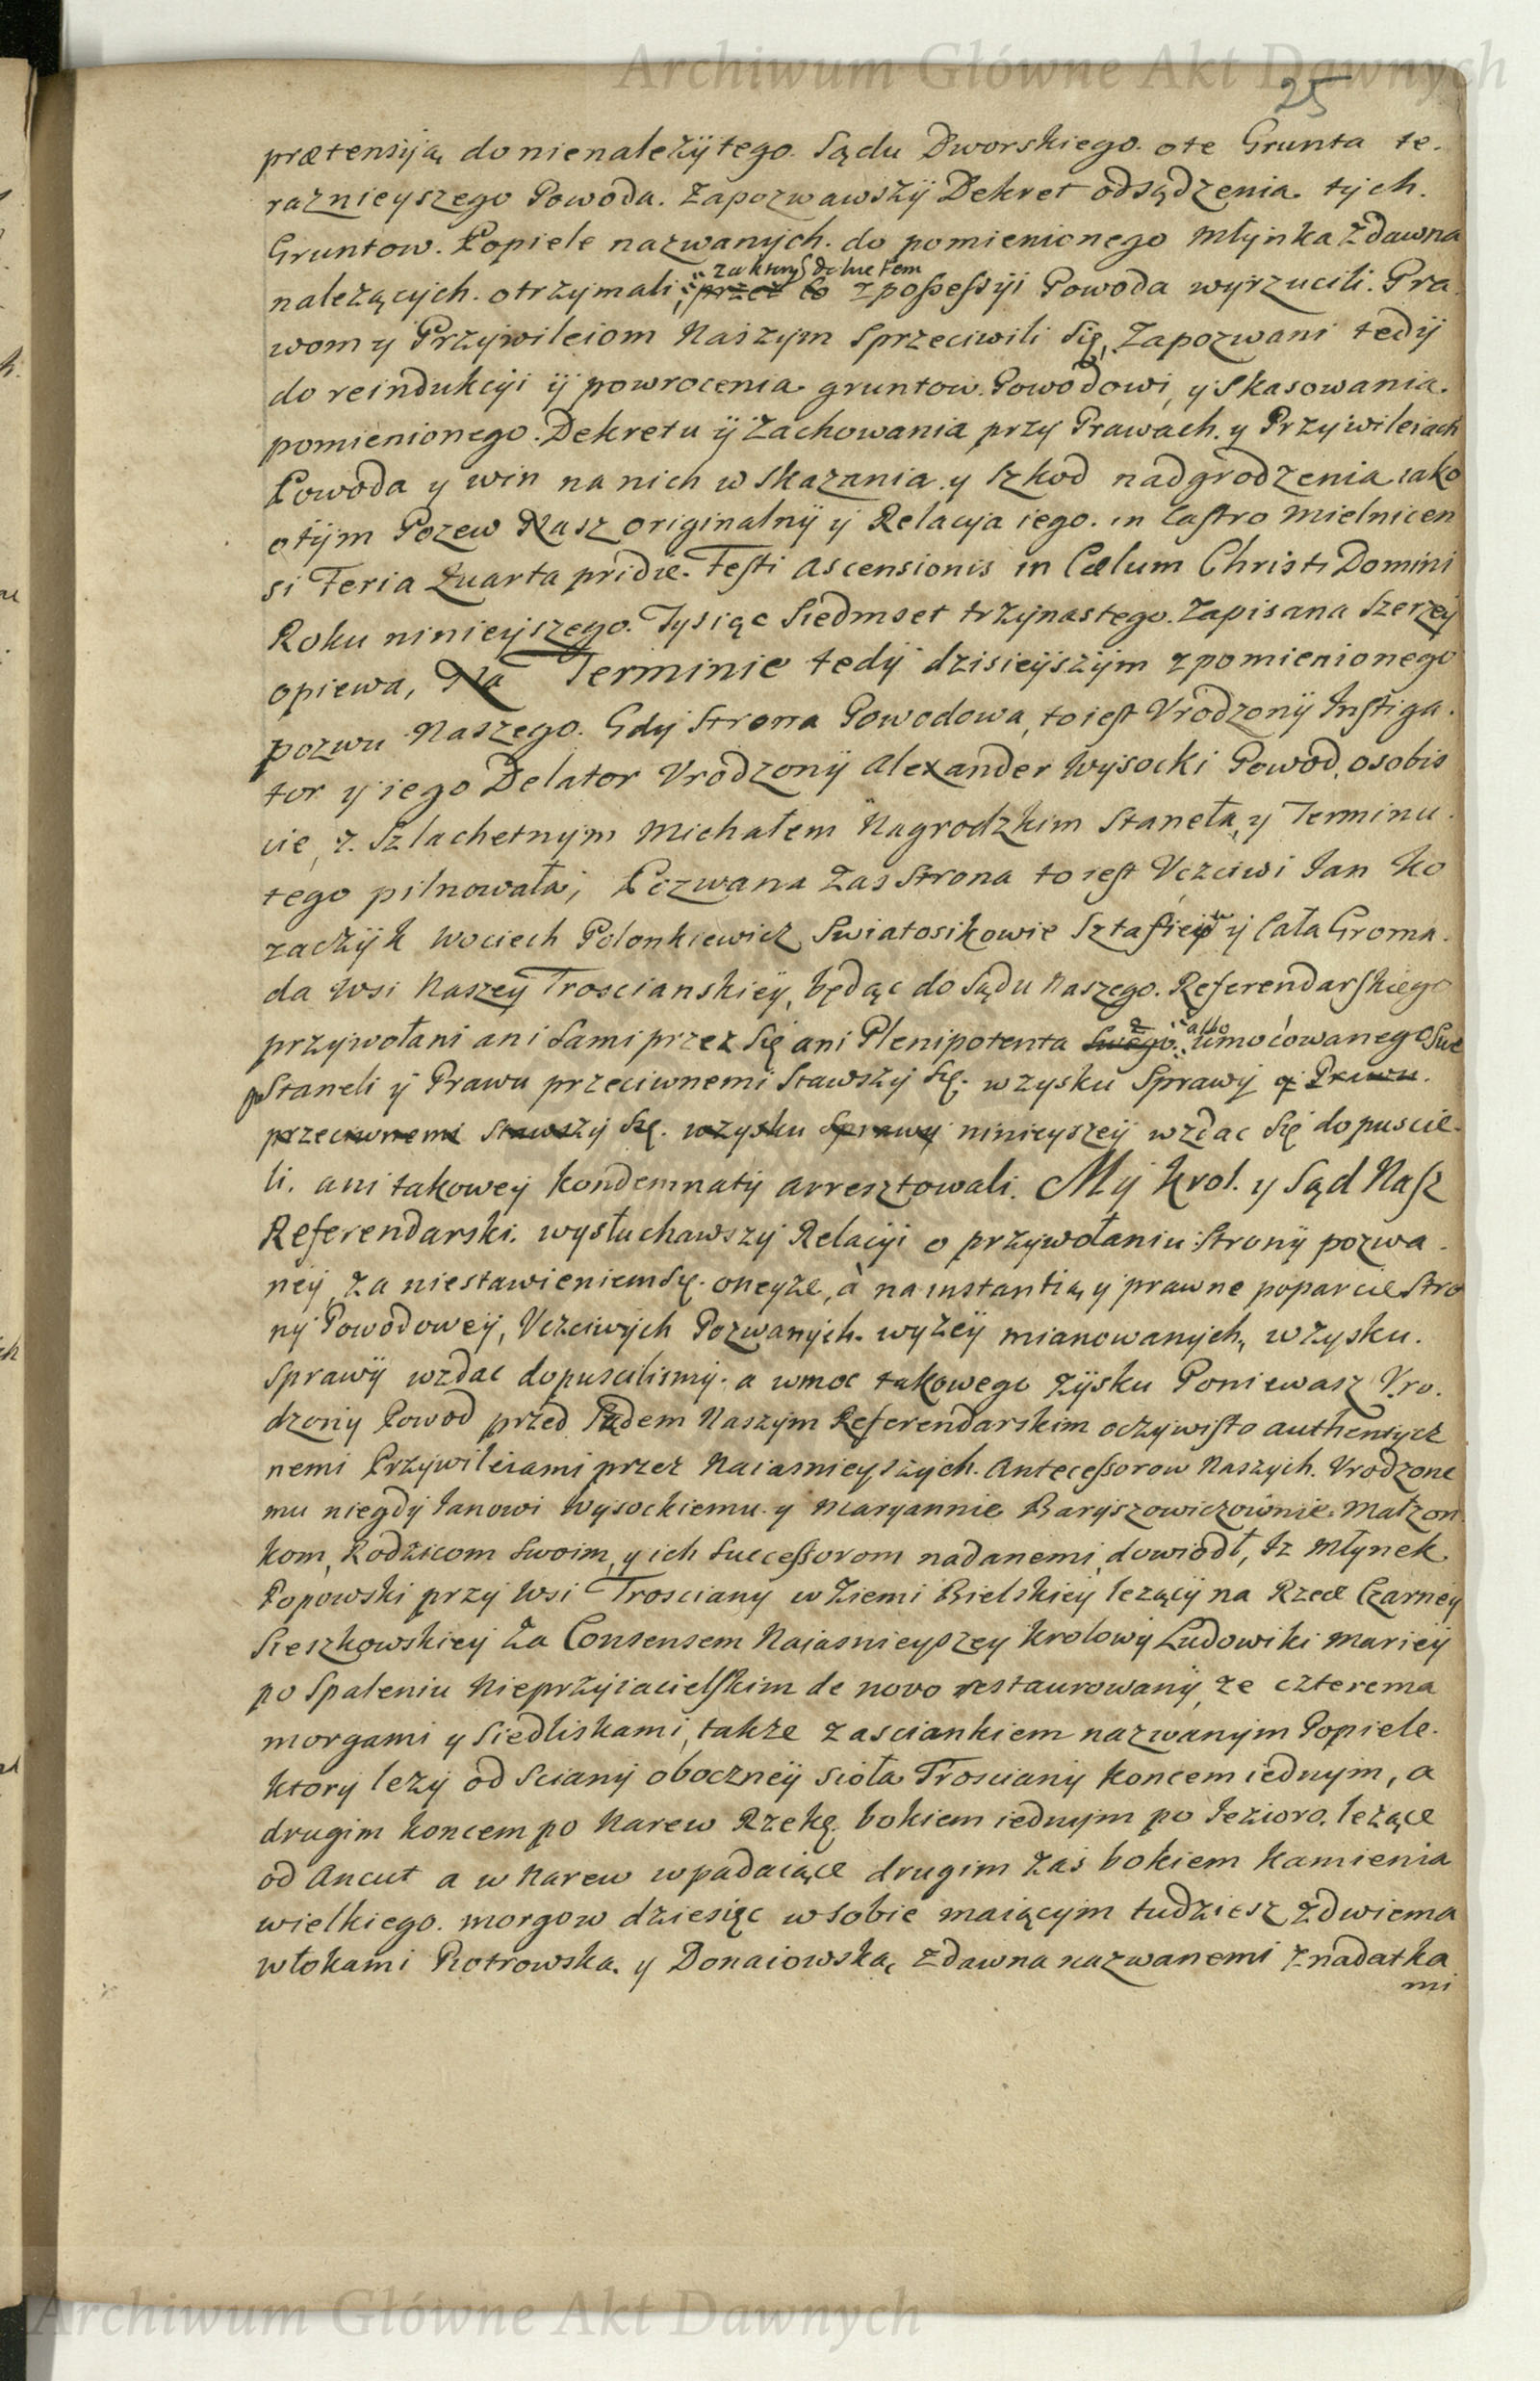 Archiwum Główne Akt Dawnych
25
prætensiją do nienależÿtego. Sądu Dworskiego. o te Grunta te.
raznieyszego Powoda. Zapozwawszÿ Dekret odsądzenia tych.
Gruntow. Popiele nazwanych. do pomienionego Młynka zdawna
należących. otrzymali, przez to z possessyi Powoda wyrzucili. Pra
za ktorÿ dekretem
wom y Przywileiom Naszym Sprzeciwili Się, Zapozwani tedÿ
do reindukcÿi ÿ powrocenia gruntow. Powodowi, y Skasowania.
pomienionego. Dekretu ÿ Zachowania przy Prawach. y Przywileiach
Powoda y win na nich wskazania. y szkod nadgrodzenia iako
o tÿm Pozew Nasz originalnÿ ÿ Relacyja iego. in Castro Mielnicen
si Feria Quarta pridie. Festi Ascensionis in Cælum Christi Domini
Roku ninieyszego. Tysiąc Siedmset trzynastego. Zapisana Szerzey
opiewa, Na Terminie tedÿ dzisieÿszÿm z pomienionego
pozwu Naszego. Gdy Strona Powodowa, to iest Vrodzonÿ Instiga.
tor y iego Delator Vrodzonÿ Alexander Wysocki Powod, osobis
cie, z. Szlachetnym Michałem Nagrodzkim Staneła, y Terminu.
tego pilnowała; Pozwana Zas Strona to iest Vczciwi Jan Ko
zaczÿk Wociech Polonkiewicz Swiatosikowie ÿ Cała Groma.
da Wsi Naszeÿ Troscianskieÿ, będąc do Sądu Naszego. Referendarskiego
przywołani ani Sami przez Się ani Plenipotenta Swego. albo umoćowanego Swe
go Staneli ÿ Prawu przeciwnemi Stawszÿ Sę. w zysku Sprawÿ y Prawu.
przeciwnemi Stawszÿ Sę. w zysku Sprawÿ ninieyszeÿ wzdac Się dopuscie.
li. ani takoweÿ Kondemnatÿ arresztowali. Mÿ Krol. y Sąd Nasz
Referendarski. wysłuchawszÿ Relacÿi o przywołaniu Stronÿ pozwa.
neÿ, za niestawieniem Sę. oneyże, à na instantią y prawne poparcie Stro
nÿ Powodoweÿ, Vczciwych Pozwanych. wyżeÿ mianowanych, w zysku.
Sprawÿ wzdac dopuscilismÿ. a wmoc takowego zÿsku Poniewasz Vro.
dzonÿ Powod przed Sądem Naszym Referendarskim oczywisto authentycz
nemi Przywileiami przez Naiasnieyszych. Antecessorow Naszych. Vrodzone
mu niegdÿ Janowi Wysockiemu. y Maryannie Baryszowiczownie Małzon
kom, Rodzicom Swoim, y ich Successorom nadanemi, dowiodł, Iz Młynek
Popowski przy Wsi Trosciany w Ziemi Bielskieÿ leżącÿ na Rzece Czarney
Sieszkowskiey Za Consensem Naiasnieyszey Krolowÿ Ludowiki Marieÿ
po Spaleniu Nieprzyiacielskim de novo restaurowanÿ, ze czterema
morgami y Siedliskami, takze zasciankiem nazwanym Popiele.
ktory lezy od Scianÿ oboczneÿ sioła Troscianÿ koncem iednym, a
drugim koncem po Narew Rzekę. bokiem iednym po Jezioro. leżące
od Ancut a w Narew wpadaiące drugim zas bokiem Kamienia
wielkiego. morgow dziesięc w sobie maiącym tudziesz zdwiema
włokami Piotrowską. y Donaiowską, zdawna nazwanemi z nadatka
mi
Archiwum Główne Akt Dawnych